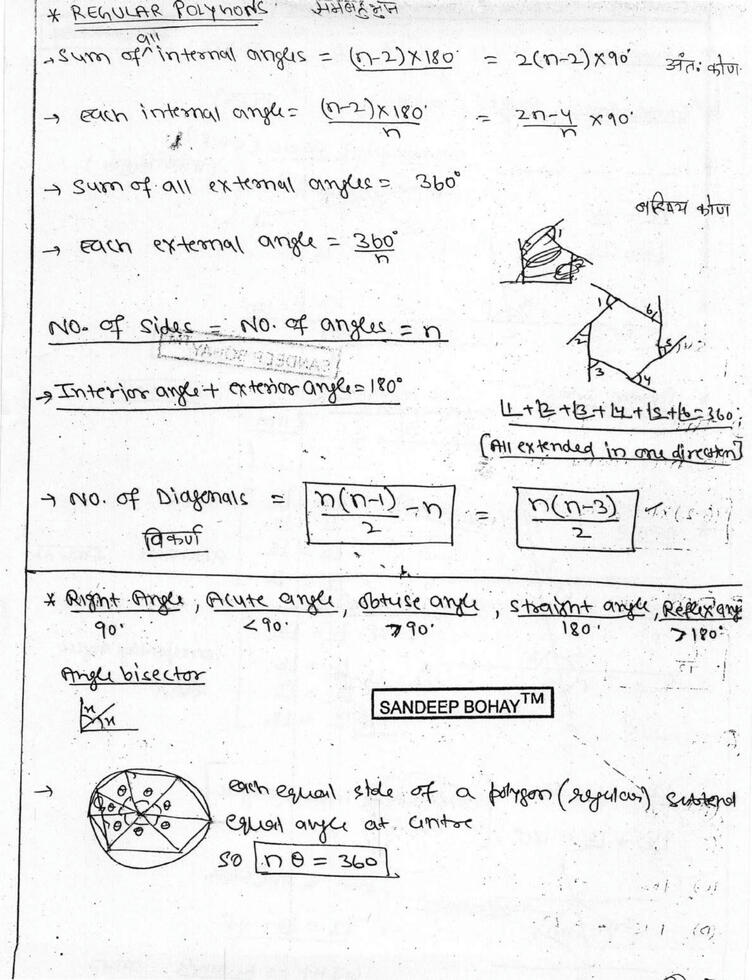 * REGULAR POLYGONS समबहुभुज
→ Sum of all internal angles = (n-2)×180° = 2(n-2)×90° अंतः कोण
→ Each internal angle = (n-2)×180° / n = 2n-4 / n ×90°
→ Sum of all external angles = 360°
→ Each external angle = 360° / n
कोण
1
2
1 6
2 5
3 4
No. of sides = No. of angles = n
SANDEEP BOHAY
→ Interior angle + exterior angle = 180°
∠1+∠2+∠3+∠4+∠5+∠6=360°
[All extended in one direction]
→ No. of Diagonals = n(n-1) / 2 - n = n(n-3) / 2
विकर्ण
* Right Angle, Acute angle, obtuse angle, straight angle, Reflex angle
90° <90° >90° 180° >180°
Angle bisector
x
x
SANDEEP BOHAY™
→ each equal side of a polygon (regular) subtend
θ θ θ θ θ θ θ
equal angle at centre
so nθ = 360